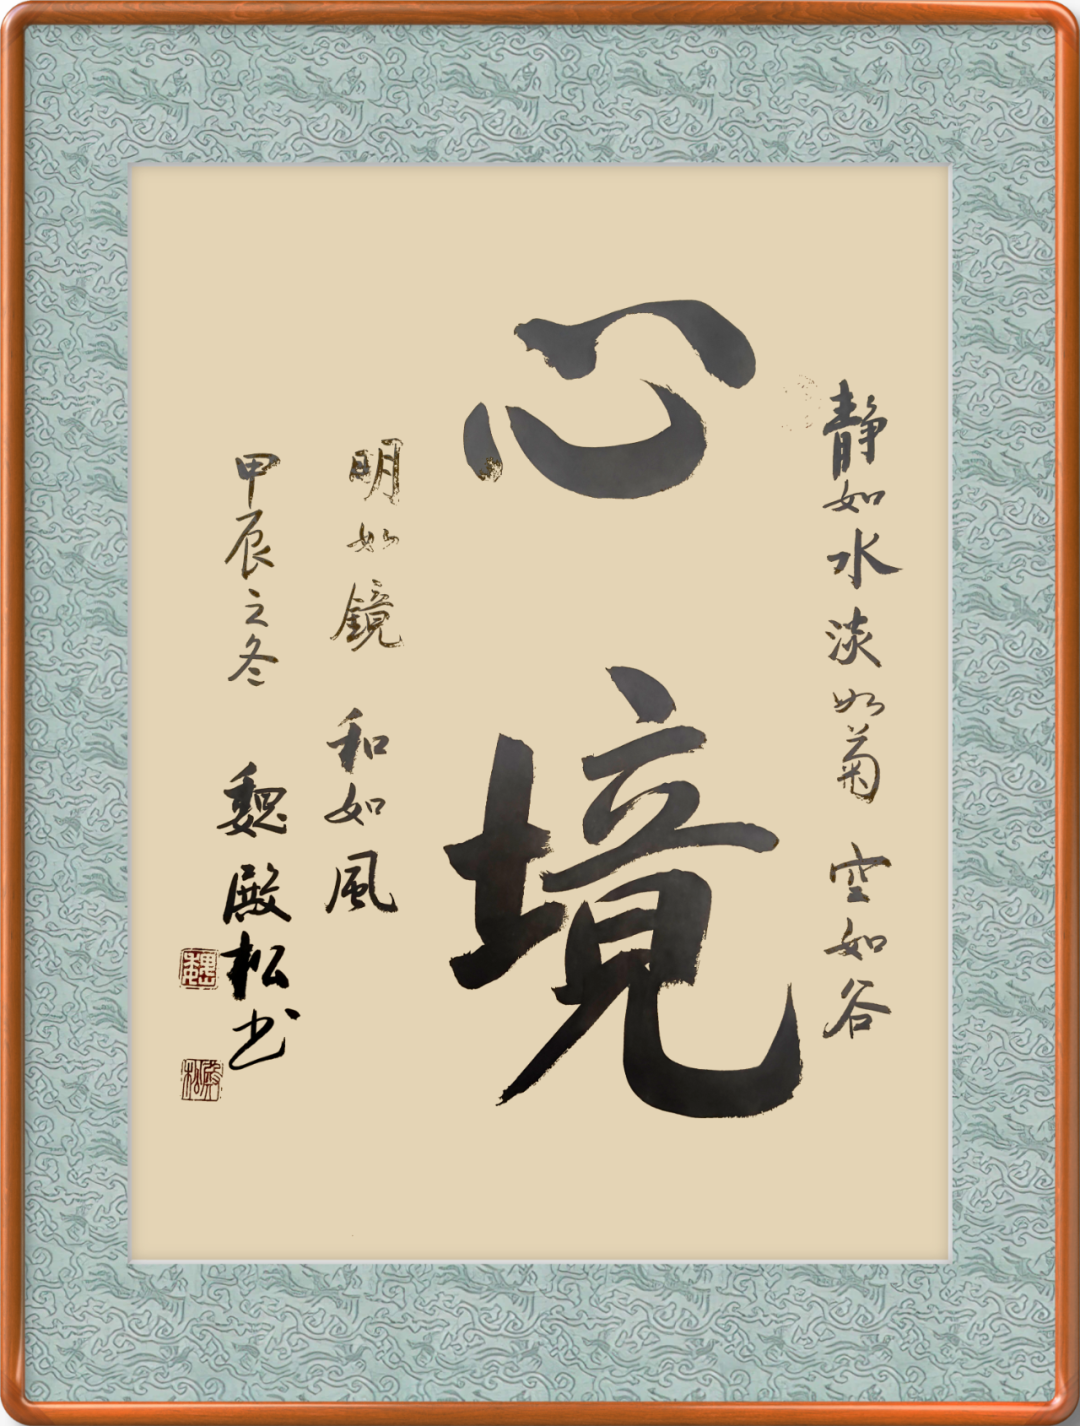 静如水淡如菊 空如谷
心境
明如镜 和如風
甲辰之冬 魏殿松书
魏
殿松